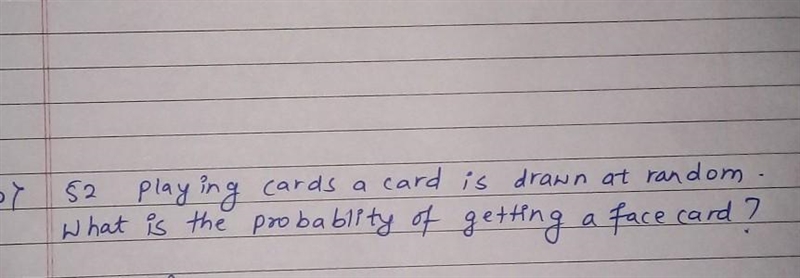 52 playing cards a card is drawn at random.
What is the probablity of getting a face card ?